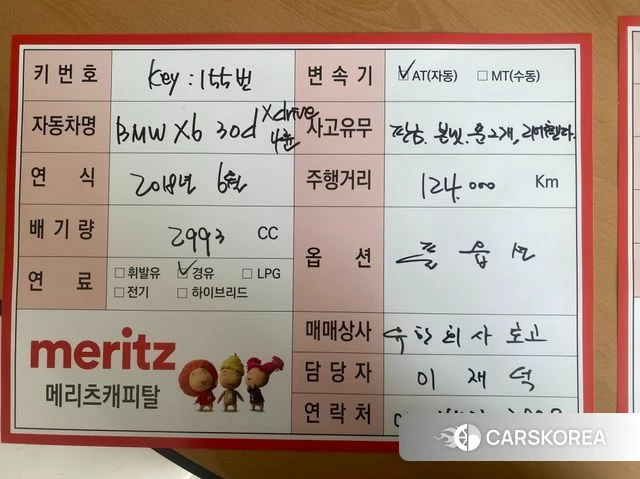 키 번 호 Key : 155번
변 속 기 ☑AT(자동) ☐MT(수동)
자동차명 BMW X6 30d xdrive 4륜
사고유무 본넷. 문2개,
연 식 2018년 6월
주행거리 124.000 Km
배 기 량 2993 CC
옵 션 풀 옵 션
연 료 ☐휘발유 ☑경유 ☐LPG
☐전기 ☐하이브리드
meritz
메리츠캐피탈
매매상사
담 당 자 이 재 덕
연 락 처
CARSKOREA